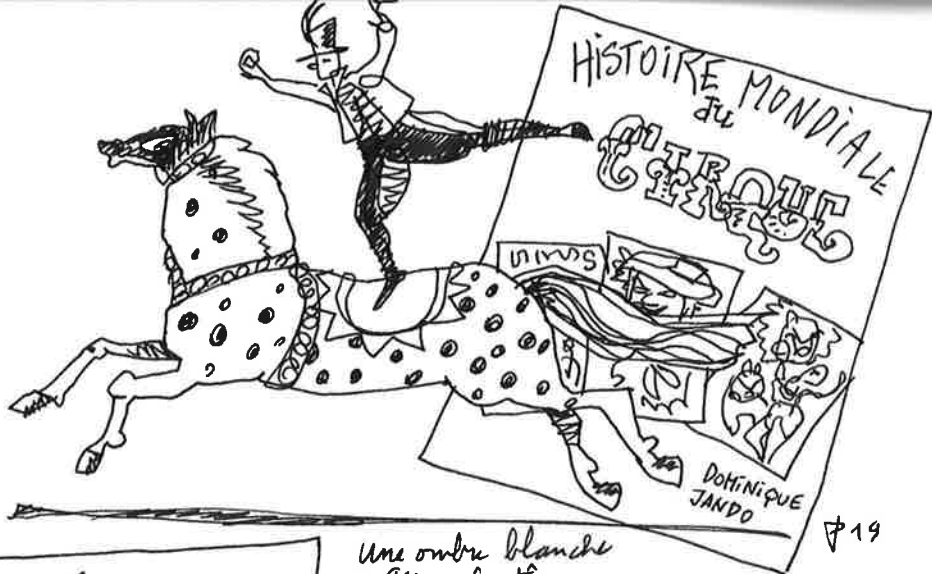 HISTOIRE MONDIALE
du
CIRQUE
DOMINIQUE
JANDO
19
Une ombre blanche